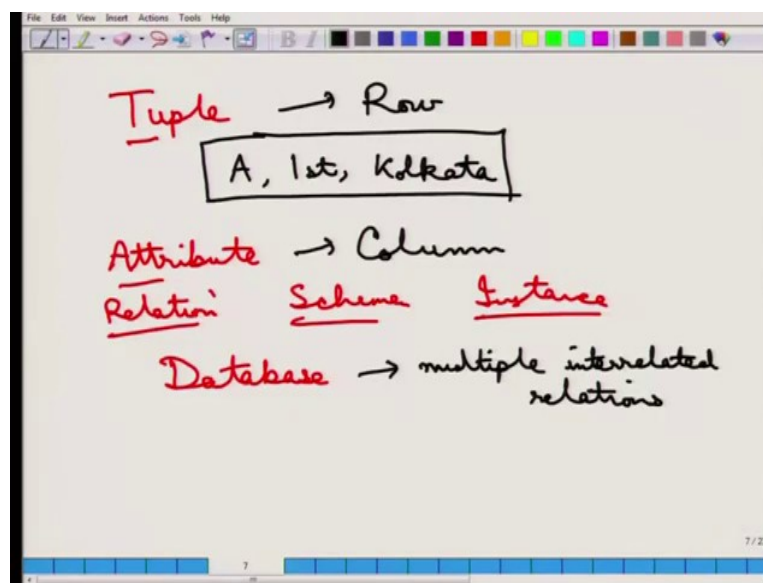 File Edit View Insert Actions Tools Help
B I
Tuple → Row
A, 1st, Kolkata
Attribute → Column
Relation Scheme Instance
Database → multiple interrelated
relations
7/2
7